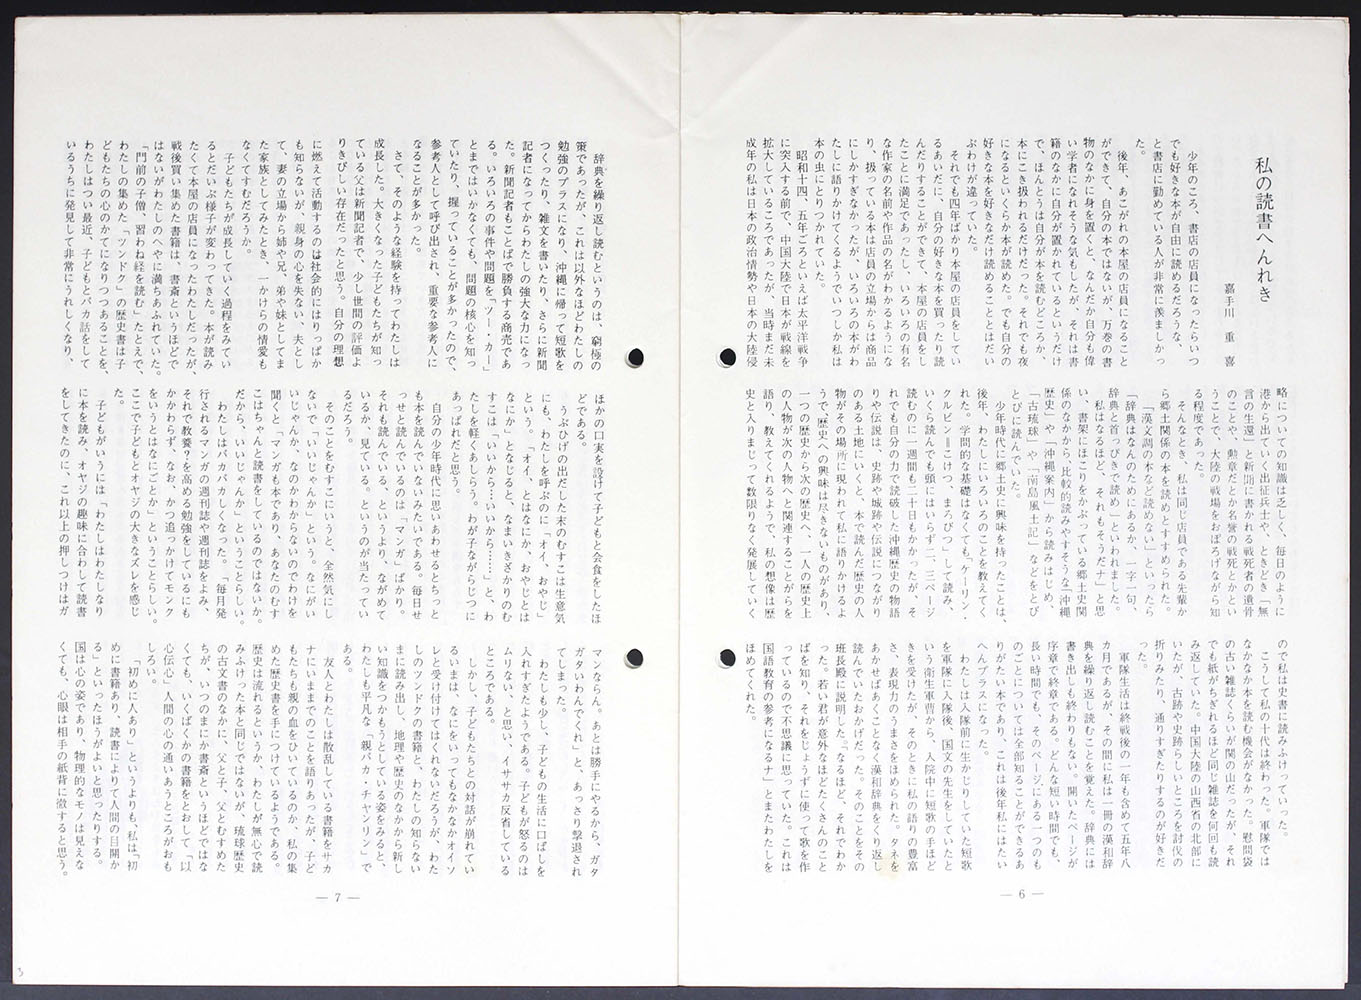 私の読書へんれき
嘉手川　重　喜
少年のころ、書店の店員になったらいつ
でも好きな本が自由に読めるだろうな、
と書店に勤めている人が非常に羨ましかっ
た。
後年、あこがれの本屋の店員になること
ができて、自分の本ではないが、万巻の書
物のなかに身を置くと、なんだか自分も偉
い学者になれそうな気もしたが、それは書
籍のなかに自分が置かれているというだけ
で、ほんとうは自分が本を読むどころか、
本にこき扱われるだけだった。それでも夜
になるといくらか本が読めた。でも自分の
好きな本を好きなだけ読めることとはだい
ぶわけが違っていた。
それでも四年ばかり本屋の店員をしてい
るあいだに、自分の好きな本を買ったり読
んだりすることができて、本屋の店員をし
たことに満足であったし、いろいろの有名
な作家の名前や作品の名がわかるようにな
り、扱っている本は店員の立場からは商品
にしかすぎなかったが、いろいろの本がわ
たしに語りかけてくるようでいつしか私は
本の虫にとりつかれていた。
昭和十四、五年ごろといえば太平洋戦争
に突入する前で、中国大陸で日本が戦線を
拡大しているころであったが、当時まだ未
成年の私は日本の政治情勢や日本の大陸侵
略についての知識は乏しく、毎日のように
港から出ていく出征兵士や、ときどき「無
言の生還」と新聞に書かれる戦死者の遺骨
のことや、勲章だとか名誉の戦死とかとい
うことで、大陸の戦場をおぼろげながら知
る程度であった。
そんなとき、私は同じ店員である先輩か
ら郷土関係の本を読めとすすめられた。
「漢文調の本など読めない」といったら
「辞典はなんのためにあるか、一字一句、
辞典と首っぴきで読め」といわれました。
私はなるほど、それもそうだナ」と思
い、書架にほこりをかぶっている郷土史関
係のなかから、比較的読みやすそうな「沖縄
歴史」や「沖縄案内」から読みはじめ、
「古琉球」や「南島風土記」などをとび
とびに読んでいた。
少年時代に郷土史に興味を持ったことは、
後年、わたしにいろいろのことを教えてく
れた。学問的な基礎はなくても「ケーリン・
クルビン＝こけつ、まろびつ」して読み、
いくら読んでも頭にはいらず二、三ページ
読むのに一週間も二十日もかかったが、そ
れでも自分の力で読破した沖縄歴史の物語
りや伝説は、史跡や城跡や伝説につながり
のある土地にいくと、本で読んだ歴史の人
物がその場所に現われて私に語りかけるよ
うで、歴史への興味は尽きないものがあり、
一つの歴史から次の歴史へ、一人の歴史上
の人物が次の人物へと関連することがらを
語り、教えてくれるようで、私の想像は歴
史と入りまじって数限りなく発展していく
ので私は史書に読みふけっていった。
こうして私の十代は終わった。軍隊では
なかなか本を読む機会がなかった。慰問袋
の古い雑誌くらいが関の山だったが、それ
でも紙がちぎれるほど同じ雑誌を何回も読
み返していた。中国大陸の山西省の北部に
いたが、古跡や史跡らしいところを討伐の
折りみたり、通りすぎたりするのが好きだ
った。
軍隊生活は終戦後の一年も含めて五年八
カ月であるが、その間に私は一冊の漢和辞
典を繰り返し読むことを覚えた。辞典には
書き出しも終わりもない。開いたページが
序章で終章である。どんな短い時間でも、
長い時間でも、そのページにある一つのも
のごとについては全部知ることができるあ
りがたい本であり、これは後年私にはたい
へんプラスになった。
わたしは入隊前に生かじりしていた短歌
を軍隊に入隊後、国文の先生をしていたと
いう衛生軍曹から、入院中に短歌の手ほど
きを受けたが、そのときに私の語りの豊富
さ、表現力のうまさをほめられた。タネを
あかせばあくことなく漢和辞典をくり返し
読んでいたおかげだった。そのことをその
班長殿に説明した「なるほど、それでわか
った。若い君が意外なほどたくさんのこと
ばを知り、それがじょうずに使って歌を作
っているので不思議に思っていた。これは
国語教育の参考になるナ」とまたわたしを
ほめてくれた。
— 6 —
辞典を繰り返し読むというのは、窮極の
策であったが、これは以外なほどわたしの
勉強のプラスになり、沖縄に帰って短歌を
つくったり、雑文を書いたり、さらに新聞
記者になってからわたしの強大な力になっ
た。新聞記者もことばで勝負する商売であ
る。いろいろの事件や問題を「ツー・カー」
とまではいかなくても、問題の核心を知っ
ていたり、握っていることが多かったので、
参考人として呼び出され、重要な参考人に
なることが多かった。
さて、そのような経験を持ってわたしは
成長した。大きくなった子どもたちが知っ
ている父は新聞記者で、少し世間の評価よ
りきびしい存在だったと思う。自分の理想
に燃えて活動するのは社会的にはりっぱか
も知らないが、親身の心を失ない、夫とし
て、妻の立場から姉や兄、弟や妹としてま
た家族としてみたとき、一かけらの情愛も
なくてすむだろうか。
子どもたちが成長していく過程をみてい
るとだいぶ様子が変わってきた。本が読み
たくて本屋の店員になったわたしだったが、
戦後買い集めた書籍は、書斎というほどで
はないがわたしのへやに満ちあふれていた。
「門前の小僧、習わぬ経を読む」たとえで、
わたしの集めた「ツンドク」の歴史書は子
どもたちの心のかてになりつつあることを、
わたしはつい最近、子どもとバカ話をして
いるうちに発見して非常にうれしくなり、
ほかの口実を設けて子どもと会食をしたほ
どである。
うぶひげの出だした末のむすこは生意気
にも、わたしを呼ぶのに「オイ、おやじ」
という。オイ、とはなにか、おやじとは
なにか、となじると、なまいきざかりのむ
すこは「いいから…いいから……」と、わ
たしを軽くあしらう。わが子ながらじつに
あっぱれだと思う。
自分の少年時代に思いあわせるとちっと
も本を読んでいないみたいである。毎日せ
っせと読んでいるのは「マンガ」ばかり。
それも読んでいる、というより、ながめて
いるか、見ている。というのが当たってい
るだろう。
そのことをむすこにいうと、全然気にし
ないで「いいじゃんか」という。なにがい
いじゃんか、なのかわからないのでわけを
聞くと、「マンガも本であり、あなたのむす
こはちゃんと読書をしているのではないか。
だから、いいじゃんか」ということらしい。
わたしはバカバカしくなった。「毎月発
行されるマンガの週刊誌や週刊誌をよみ、
それで教養？を高める勉強をしているにも
かかわらず、なお、かつ追っかけてモンク
をいうとはなにごとか」ということらしい。
ここで子どもとオヤジの大きなズレを感じ
た。
子どもがいうには「わたしはわたしなり
に本を読み、オヤジの趣味に合わして読書
をしてきたのに、これ以上の押しつけはガ
マンならん。あとは勝手にやるから、ガタ
ガタいわんでくれ」と、あっさり撃退され
てしまった。
わたしも少し、子どもの生活に口ばしを
入れすぎたようである。子どもが怒るのは
ムリない、と思い、イササカ反省している
ところである。
しかし、子どもたちとの対話が崩れてい
るいまは、なにをいってもなかなかオイソ
レと受け付けてはくれないだろうが、わた
しのツンドクの書籍と、わたしの知らない
まに読み出し、地理や歴史のなかから新し
い知識をつかもうとしている姿をみると、
わたしも平凡な「親バカ・チャンリン」で
ある。
友人とわたしは散乱している書籍をサカ
ナにいままでのことを語りあったが、子ど
もたちも親の血をひいているのか、私の集
めた歴史書を手につけているようである。
歴史は流れるというか、わたしが無心で読
みふけった本と同じではないが、琉球歴史
の古文書のなかに、父と子、父とむすめた
ちが、いつのまにか書斎というほどではな
くても、いくばくかの書籍をとおして「以
心伝心」人間の心の通いあうところがおも
しろい。
「初めに人あり」というよりも、私は「初
めに書籍あり、読書によりて人間の目開か
る」といったほうがよいと思ったりする。
国は心の姿であり、物理的なモノは見えな
くても、心眼は相手の紙背に徹すると思う。
— 7 —
3